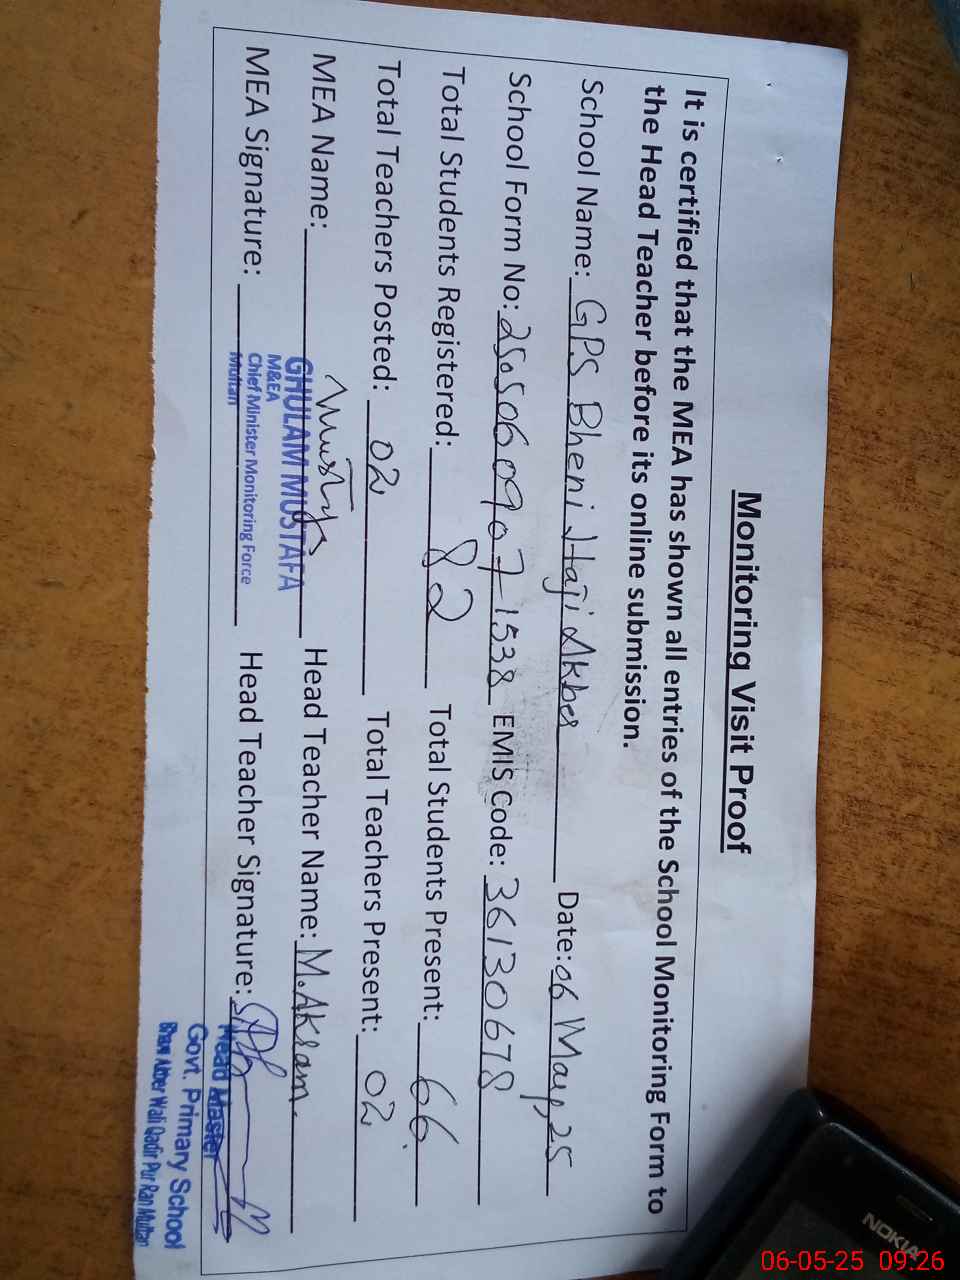 Monitoring Visit Proof
It is certified that the MEA has shown all entries of the School Monitoring Form to
the Head Teacher before its online submission.
School Name: GPS Bheni Haji Akber Date: 06 May, 25
School Form No: 25050609071538 EMIS Code: 36130678
Total Students Registered: 82 Total Students Present: 66
Total Teachers Posted: 02 Total Teachers Present: 02
MEA Name: Head Teacher Name: M. Akram.
GHULAM MUSTAFA
M&EA
Chief Minister Monitoring Force
Multan
MEA Signature: Head Teacher Signature:
Head Master
Govt. Primary School
Akber Wali Qadir Pur Ran Multan
NOKIA
06-05-25 09:26